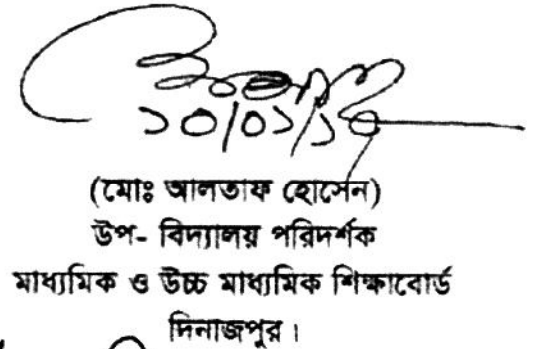 ১০/০১/১০
(মোঃ আলতাফ হোসেন)
উপ- বিদ্যালয় পরিদর্শক
মাধ্যমিক ও উচ্চ মাধ্যমিক শিক্ষাবোর্ড
দিনাজপুর।